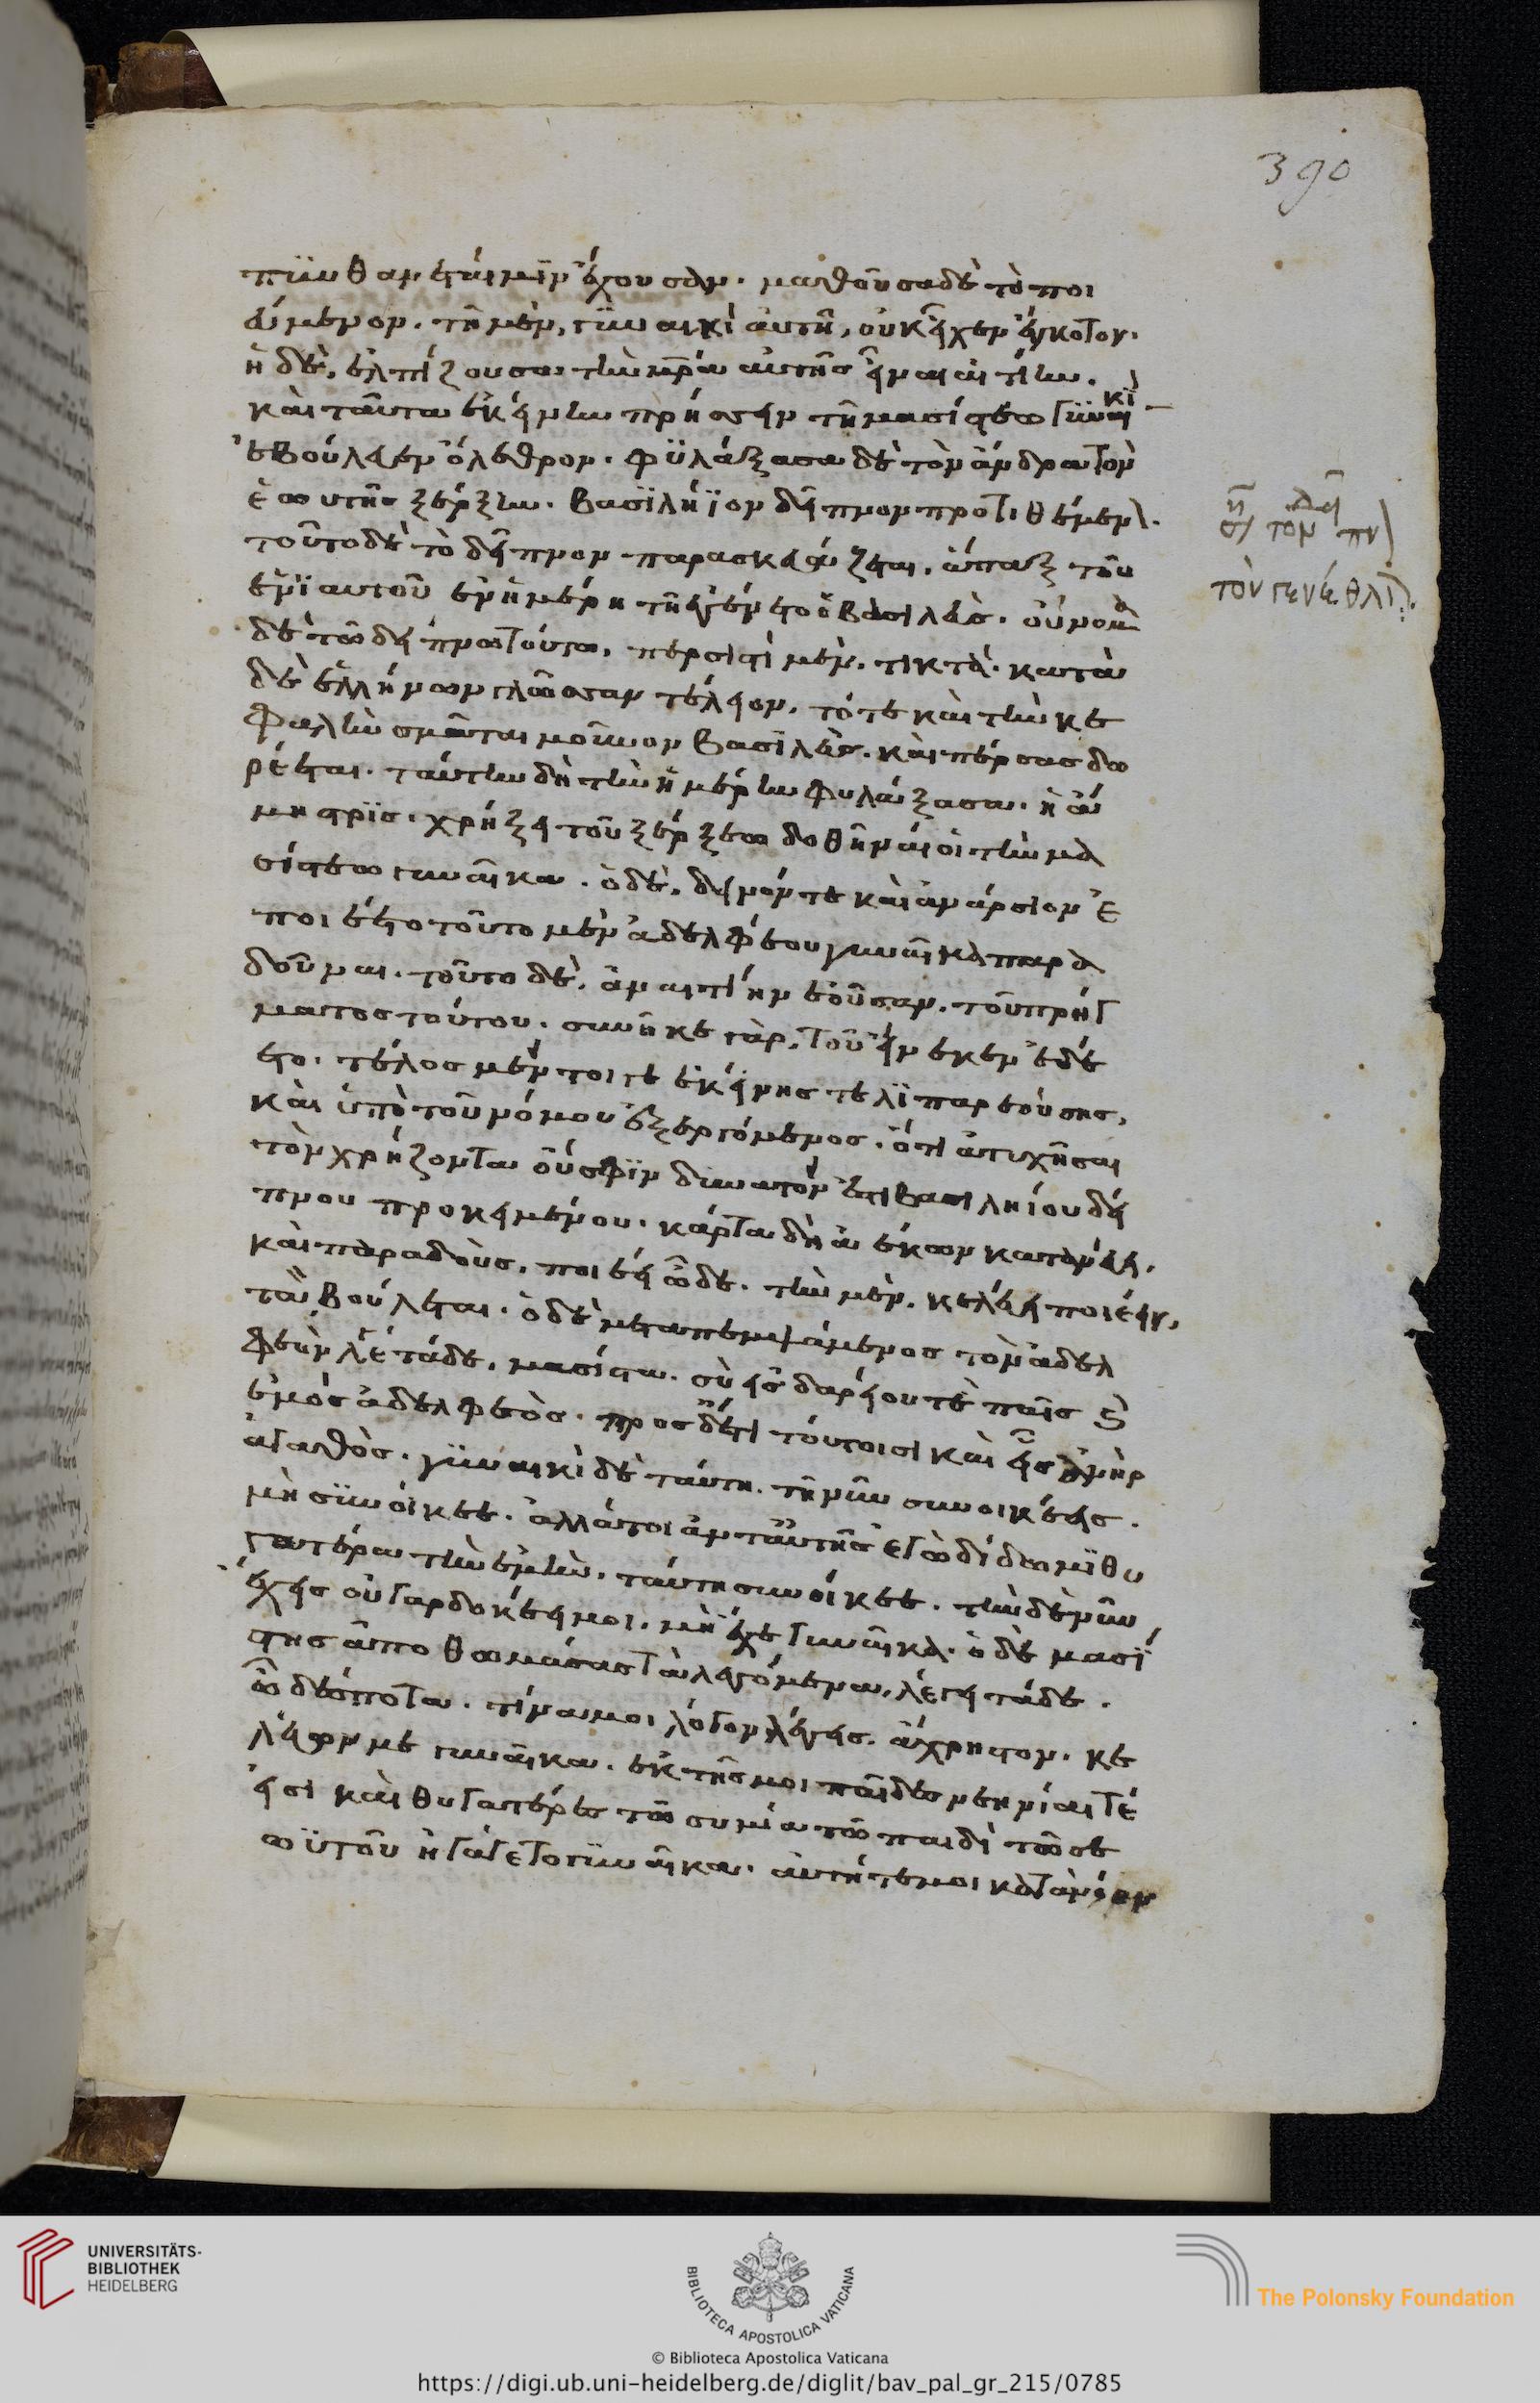 390
πυνθάνεταί μιν ἔχουσαν. μαθοῦσα δὲ τὸ ποι
εύμενον. τῆ μὲν, γυναικὶ αὐτῆ, οὐκ εἶχεν ἔγκοτον.
ἡ δὲ, ἐλπίζουσα τὴν μρ̄α αὐτῆς εἶναι αἰτίην.
καὶ ταῦτα ἐκείνην πρήσσειν τῆ μασίστεω γυναικὶ
ἐβούλευεν ὄλεθρον. φυλάξασα δὲ τὸν ἄνδρα τὸν
ἑωυτῆς ξέρξην. βασιλήϊον δεῖπνον προτιθέμεν.
τοῦτο δὲ τὸ δεῖπνον παρασκευάζεται. ἅπαξ τοῦ
ἐνιαυτοῦ ἐν ἡμέρη τῆ ἐγένετο ὁ βασιλεύς. οὔνομα
δὲ τῶ δείπνω τούτω, περσιστὶ μὲν. τικτὰ. κατὰ
δὲ ἑλλήνων γλῶσσαν τέλειον. τότε καὶ τὴν κε
φαλὴν σμᾶται μοῦνον βασιλεὺς. καὶ πέρσας δω
ρέεται. ταύτην δὴ τὴν ἡμέρην φυλάξασα. ἡ ἄ
μηστρις. χρηΐζει τοῦ ξέρξεω δοθῆναί οἱ τὴν μα
σίστεω γυναῖκα. ὁ δὲ, δεινόν τε καὶ ἀνάρσιον ἐ
ποιέετο τοῦτο μὲν ἀδελφέου γυναῖκα παρα
δοῦναι. τοῦτο δὲ, ἀναιτίην ἐοῦσαν. τοῦ πρήγ
ματος τούτου. συνῆκε γὰρ, τοῦ εἵνεκεν ἐδέ
ετο. τέλος μέντοι γε ἐκείνης τε λιπαρεούσης,
καὶ ὑπὸ τοῦ νόμου ἐξεργόμενος. ὅτι ἀτυχῆσαι
τὸν χρήζοντα οὔ σφιν δυνατόν ἐστι βασιληίου δεί
πνου προκειμένου. κάρτα δὴ ἀέκων κατανεύει.
καὶ παραδοὺς, ποιέει ὧδε. τὴν μὲν. κελεύει ποιέειν,
τὰ βούλεται. ὁ δὲ μεταπεμψάμενος τὸν ἀδελ
φεὸν λέγει τάδε. μασίστα. σὺ εἶς δαρείου τε παῖς καὶ
ἐμὸς ἀδελφεὸς. πρὸς δ' ἔτι τούτοισι καὶ εἶς ἀνὴρ
ἀγαθὸς. γυναικὶ δὲ ταύτη. τῆ νῦν συνοικέεις.
μὴ συνοίκεε. ἀλλά τοι ἀντ' αὐτῆς ἐγὼ δίδωμι θυ
γατέρα τὴν ἐμὴν. ταύτη συνοίκεε. τὴν δὲ νῦν
ἔχεις οὐ γὰρ δοκέει μοι. μὴ ἔχε γυναῖκα. ὁ δὲ μασί
στης ἀποθωμάσας τὰ λεγόμενα, λέγει τάδε.
ὦ δέσποτα. τίνα μοι λόγον λέγεις. ἄχρηστον. κε
λεύων με γυναῖκα. ἐκ τῆς μοι παῖδες νεηνίαι τέ
εἰσι καὶ θυγατέρες τῶν σὺ μίαν τῶ παιδὶ τῶ σε
ωϋτοῦ ἠγάγετο γυναῖκα. αὐτή τέ μοι κατὰ νόον
τὸν γενέθλι
© Biblioteca Apostolica Vaticana
https://digi.ub.uni-heidelberg.de/diglit/bav_pal_gr_215/0785
UNIVERSITÄTS-
BIBLIOTHEK
HEIDELBERG
BIBLIOTECA APOSTOLICA VATICANA
The Polonsky Foundation